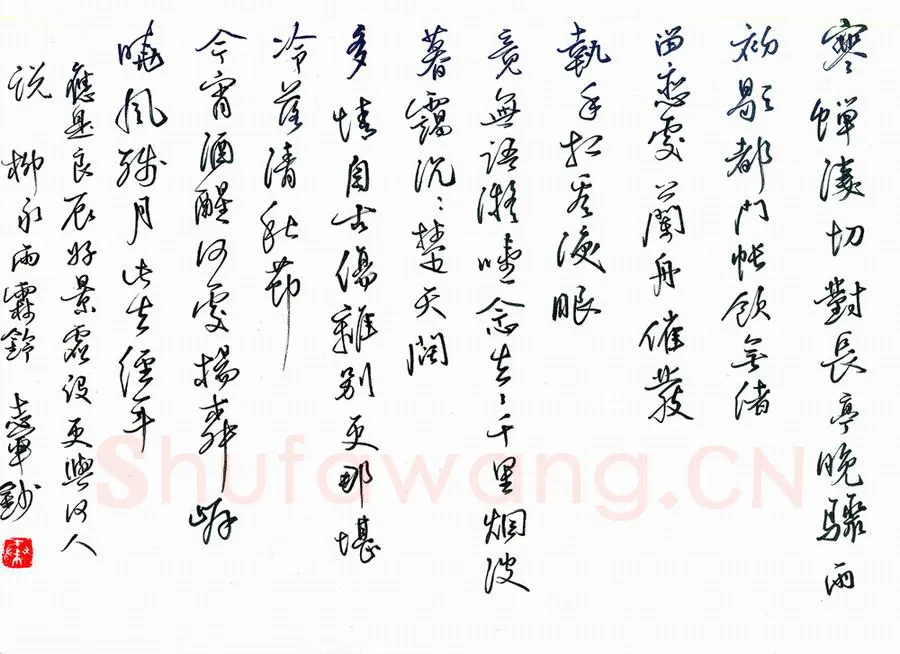 寒蟬淒切對長亭晚驟雨
初歇都門帳飲無緒
留戀處蘭舟催發
執手相看淚眼
竟無語凝噎念去〻千里烟波
暮靄沉〻楚天闊
多情自古傷離別更那堪
冷落清秋節
今宵酒醒何處楊柳岸
曉風殘月此去經年
應是良辰好景虛設更與何人
説 柳永雨霖鈴 志軍鈔
Shufawang.CN